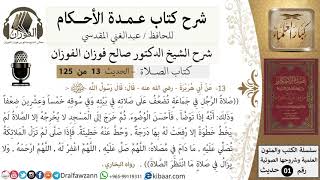 شرح كتاب عمدة الأحكام
للحافظ / عبدالغني المقدسي
شرح الشيخ الدكتور صالح فوزان الفوزان
كتاب الصلاة - الحديث 13 من 125
13- عن أبي هريرة - رضي الله عنه - قال: قال رسول الله ﷺ:
((صلاة الرجل في جماعة تضعف على صلاته في بيته وفي سوقه خمسا وعشرين ضعفا
وذلك: أنه إذا توضأ، فأحسن الوضوء. ثم خرج إلى المسجد لا يخرجه إلا الصلاة لم
يخط خطوة إلا رفعت له بها درجة، وحط عنه خطيئة. فإذا صلى لم تزل الملائكة
تصلي عليه، ما دام في مصلاه: اللهم صل عليه، اللهم اغفر له، اللهم ارحمه، ولا
يزال في صلاة ما انتظر الصلاة)) رواه البخاري.
الفوزان
سلسلة الكتب والمتون
العلمية وشروحها الصوتية
رقم 01 حديث
Dralfawzann
kibaar.com